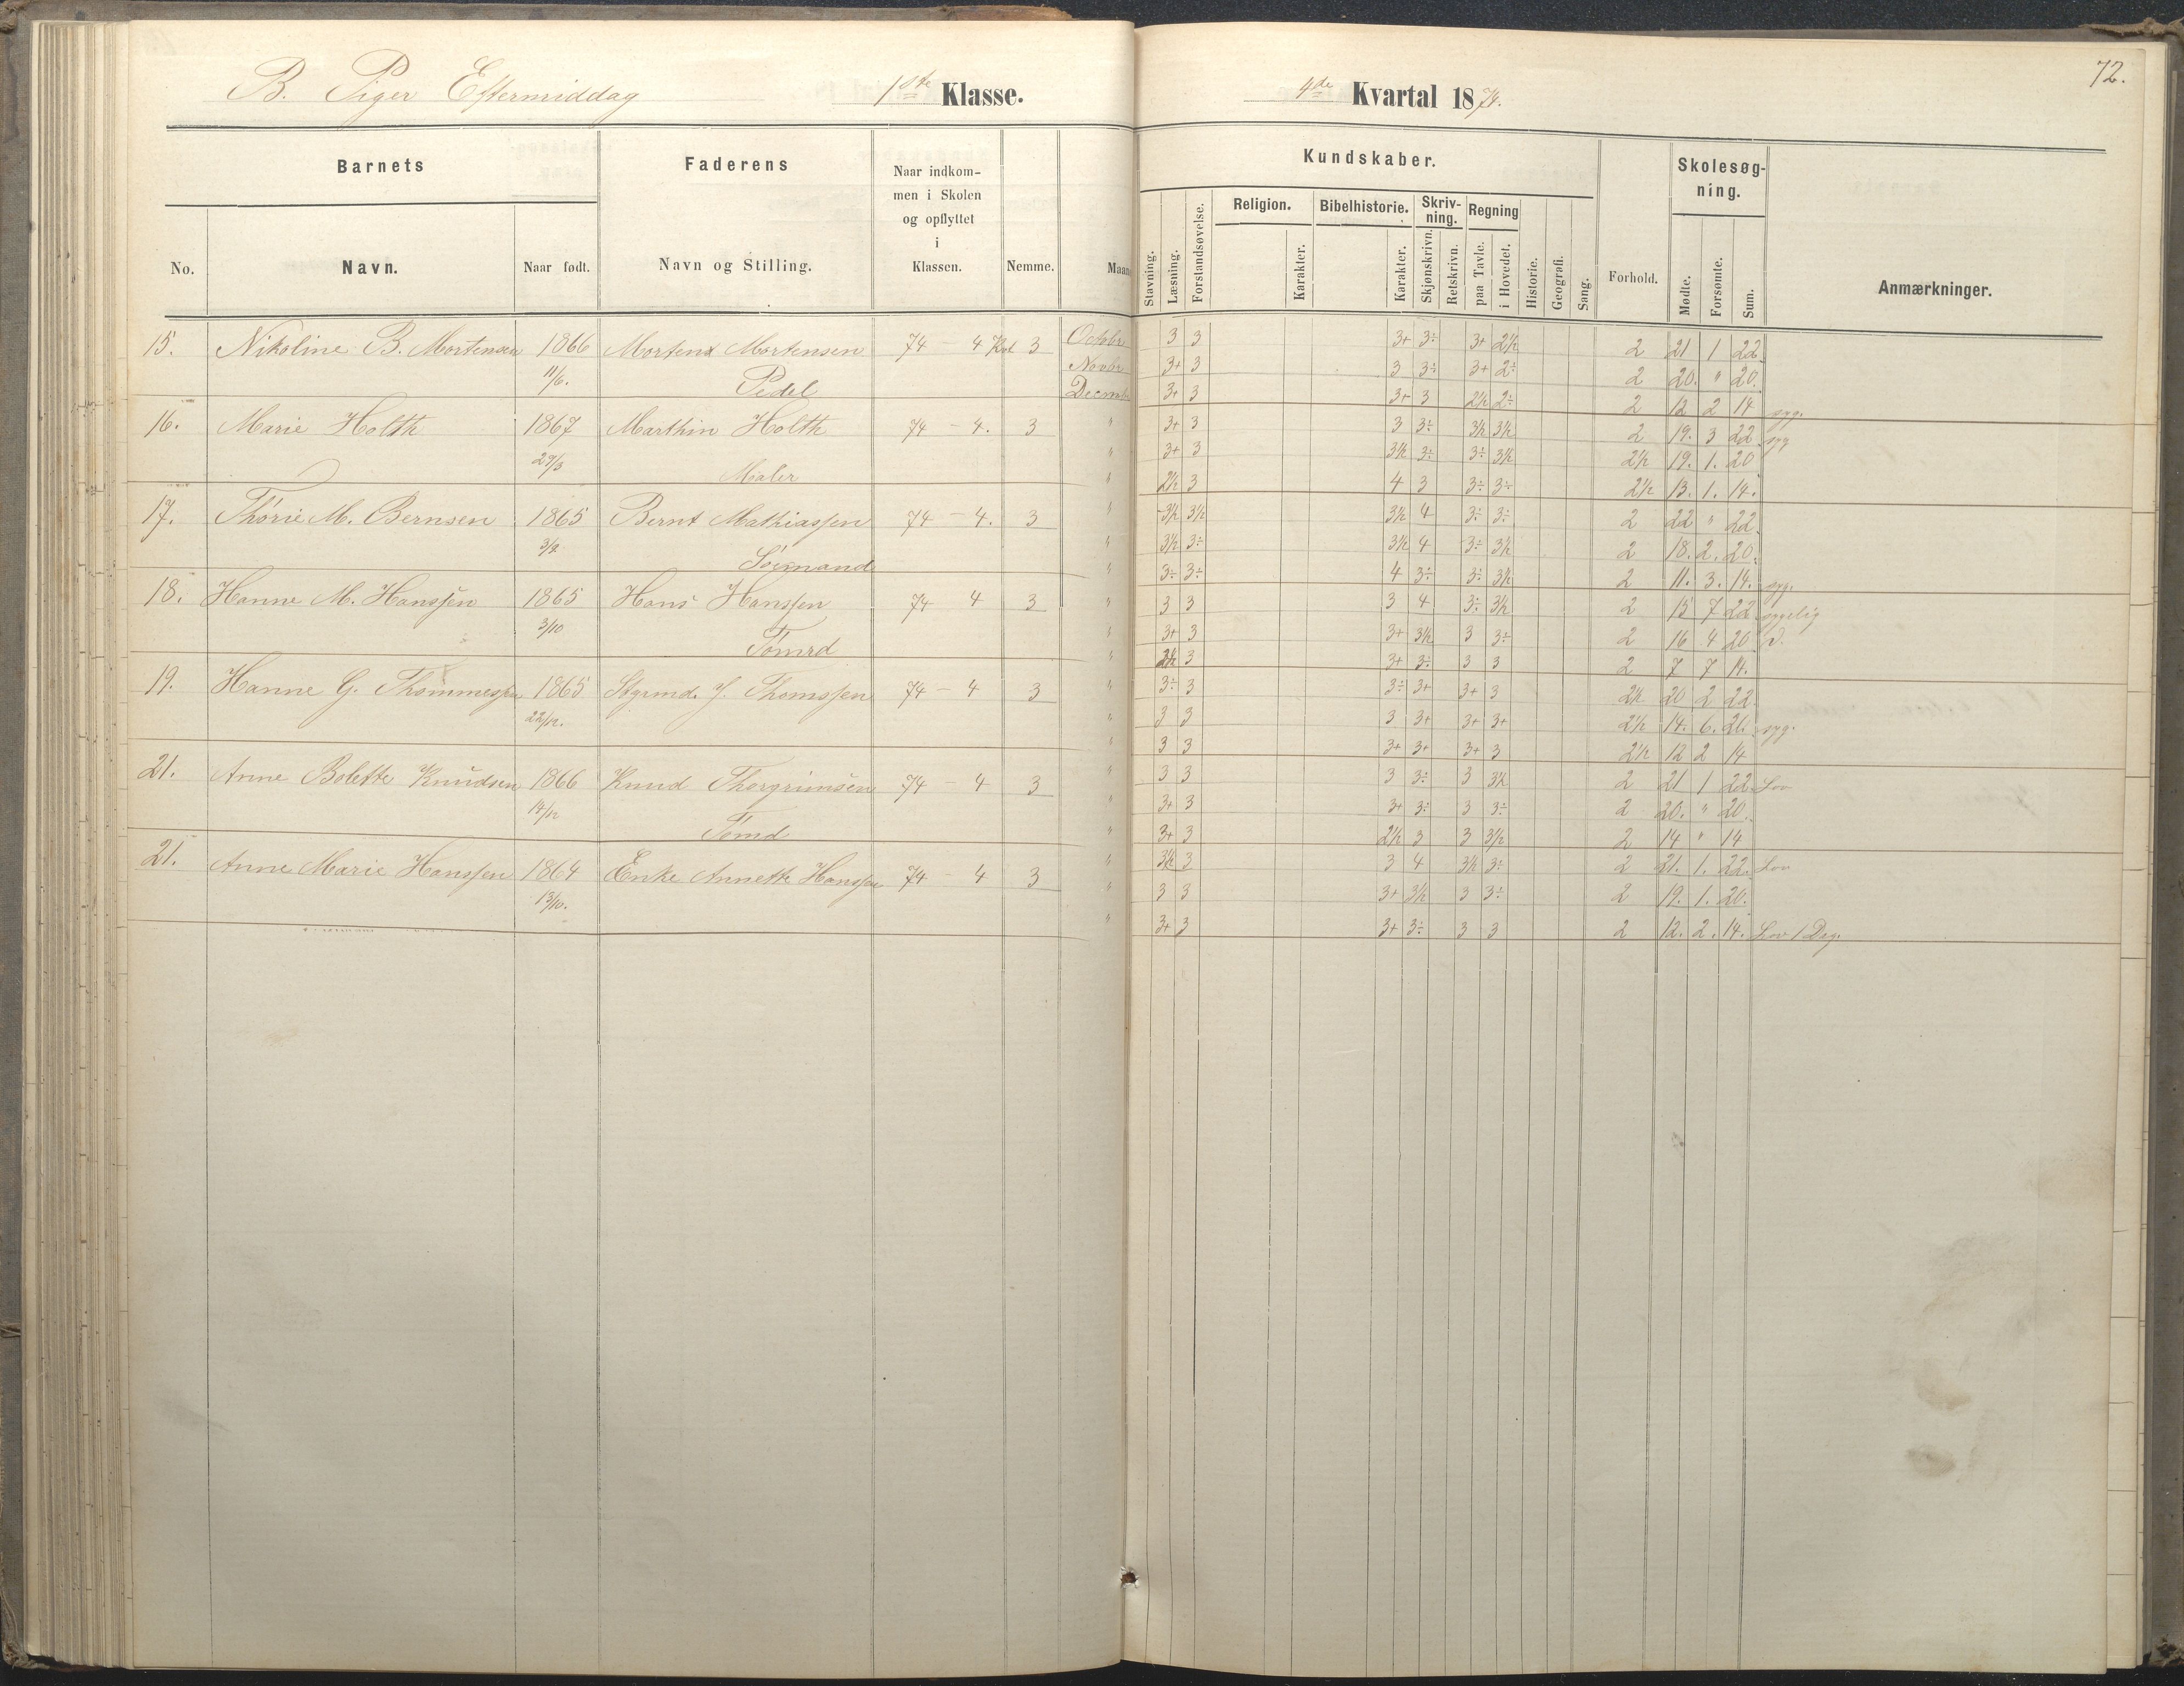 B. Piger Eftermiddag 1ste Klasse. 4de Kvartal 1874. 72.
Barnets Faderens Naar indkommen i Skolen og opflyttet i Klassen. Nemme. Maan Kundskaber. Forhold. Skolesøgning. Anmærkninger.
No. Navn. Naar født. Navn og Stilling. Stavning. Læsning. Forstandsøvelse. Religion. Karakter. Bibelhistorie. Karakter. Skrivning. Skjønskrivn. Retskrivn. Regning paa Tavle. i Hovedet. Historie. Geografi. Sang. Mødte. Forsømte. Sum.
15. Nikoline B. Mortensen 1866 Morten Mortensen 74 - 4 Kvt 3 Octobr 3 3 3+ 3÷ 3+ 2½ 2 21 1 22
11/6. Pedel Novbr 3+ 3 3 3÷ 3+ 2÷ 2 20. " 20.
Decmbr 3+ 3 3+ 3 2½ 2÷ 2 12 2 14 syg.
16. Marie Holth 1867 Marthin Holth 74 - 4. 3 " 3+ 3 3 3÷ 3½ 3½ 2 19. 3 22 syg
29/3 " 3+ 3 3½ 3÷ 3÷ 3½ 2½ 19. 1. 20
Maler " 2½ 3 4 3 3÷ 3÷ 2½ 13. 1. 14.
17. Thorie M. Bernsen 1865 Bernt Mathiassen 74 - 4. 3 " 3½ 3½ 3½ 4 3÷ 3÷ 2 22 " 22.
3/2 " 3½ 3÷ 3½ 4 3÷ 3½ 2 18. 2. 20.
Sømand " 3÷ 3÷ 4 3÷ 3÷ 3½ 2 11. 3. 14. syg.
18. Hanne M. Hanssen 1865 Hans Hanssen 74 4 3 " 3 3 3 4 3÷ 3½ 2 15 7 22 sygelig
3/10 " 3+ 3 3+ 3½ 3 3÷ 2 16 4 20
Tømrd " 2½ 3 3+ 3÷ 3 3 2 7 7 14.
19. Hanne G. Thommessen 1865 Styrmd. J. Thomssen 74 - 4 3 " 3÷ 3 3÷ 3+ 3+ 3 2½ 20 2 22
22/12. " 3 3 3 3+ 3+ 3+ 2½ 14. 6. 20. syg.
" 3 3 3+ 3+ 3+ 3 2½ 12 2 14
21. Anne Bolette Knudsen 1866 Knud Thorgrimsen 74 - 4 3 " 3 3 3 3÷ 3 3½ 2 21 1 22 Lov
14/12 " 3+ 3 3+ 3÷ 3 3÷ 2 20. " 20.
Tømd " 3+ 3 2½ 3 3 3½ 2 14 " 14
21. Anne Marie Hanssen 1864 Enke Annette Hanssen 74 - 4 3 " 3½ 3 3 4 3½ 3÷ 2 21. 1. 22. Lov
13/10. " 3 3 3+ 3½ 3 3÷ 2 19. 1. 20.
" 3+ 3 3+ 3÷ 3 3 2 12. 2. 14. Lov 1 Dag.